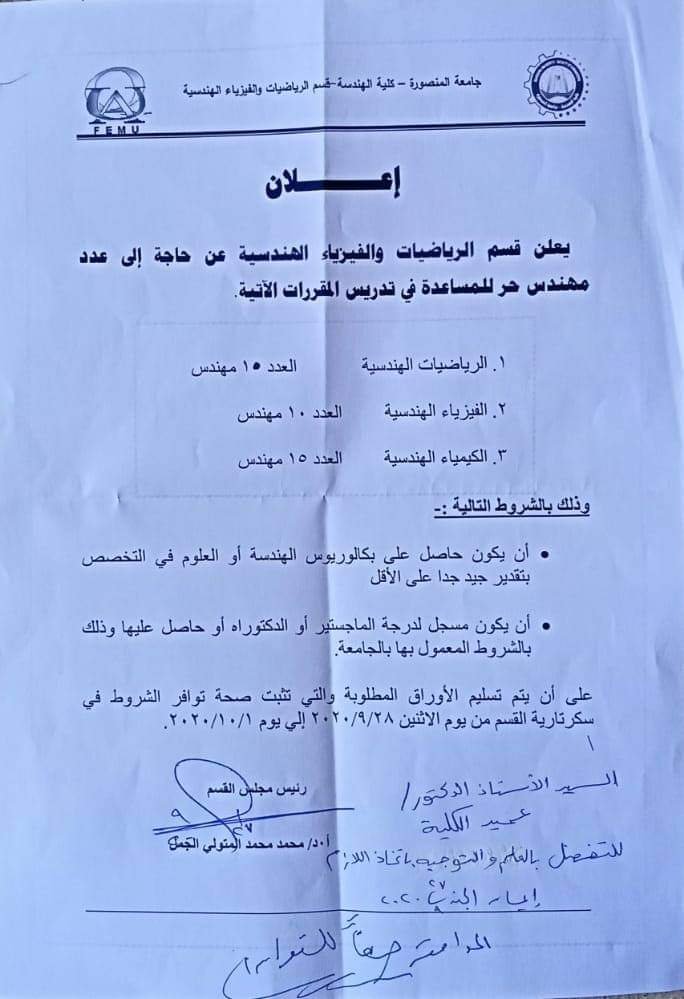 جامعة المنصورة – كلية الهندسة – قسم الرياضيات والفيزياء الهندسية
FEMU
إعـــــــلان
يعلن قسم الرياضيات والفيزياء الهندسية عن حاجة إلى عدد
مهندس حر للمساعدة في تدريس المقررات الآتية.
١. الرياضيات الهندسية العدد ١٥ مهندس
٢. الفيزياء الهندسية العدد ١٠ مهندس
٣. الكيمياء الهندسية العدد ١٥ مهندس
وذلك بالشروط التالية :-
• أن يكون حاصل على بكالوريوس الهندسة أو العلوم في التخصص
بتقدير جيد جدا على الأقل
• أن يكون مسجل لدرجة الماجستير أو الدكتوراه أو حاصل عليها وذلك
بالشروط المعمول بها بالجامعة.
على أن يتم تسليم الأوراق المطلوبة والتي تثبت صحة توافر الشروط في
سكرتارية القسم من يوم الاثنين ٢٠٢٠/٩/٢٨ إلي يوم ٢٠٢٠/١٠/١.
رئيس مجلس القسم
أ.د/ محمد محمد المتولي الجمل
السيد الأستاذ الدكتور/
عميد الكلية
للتفضل بالعلم والتوجيه باتخاذ اللازم
٢٠٢٠